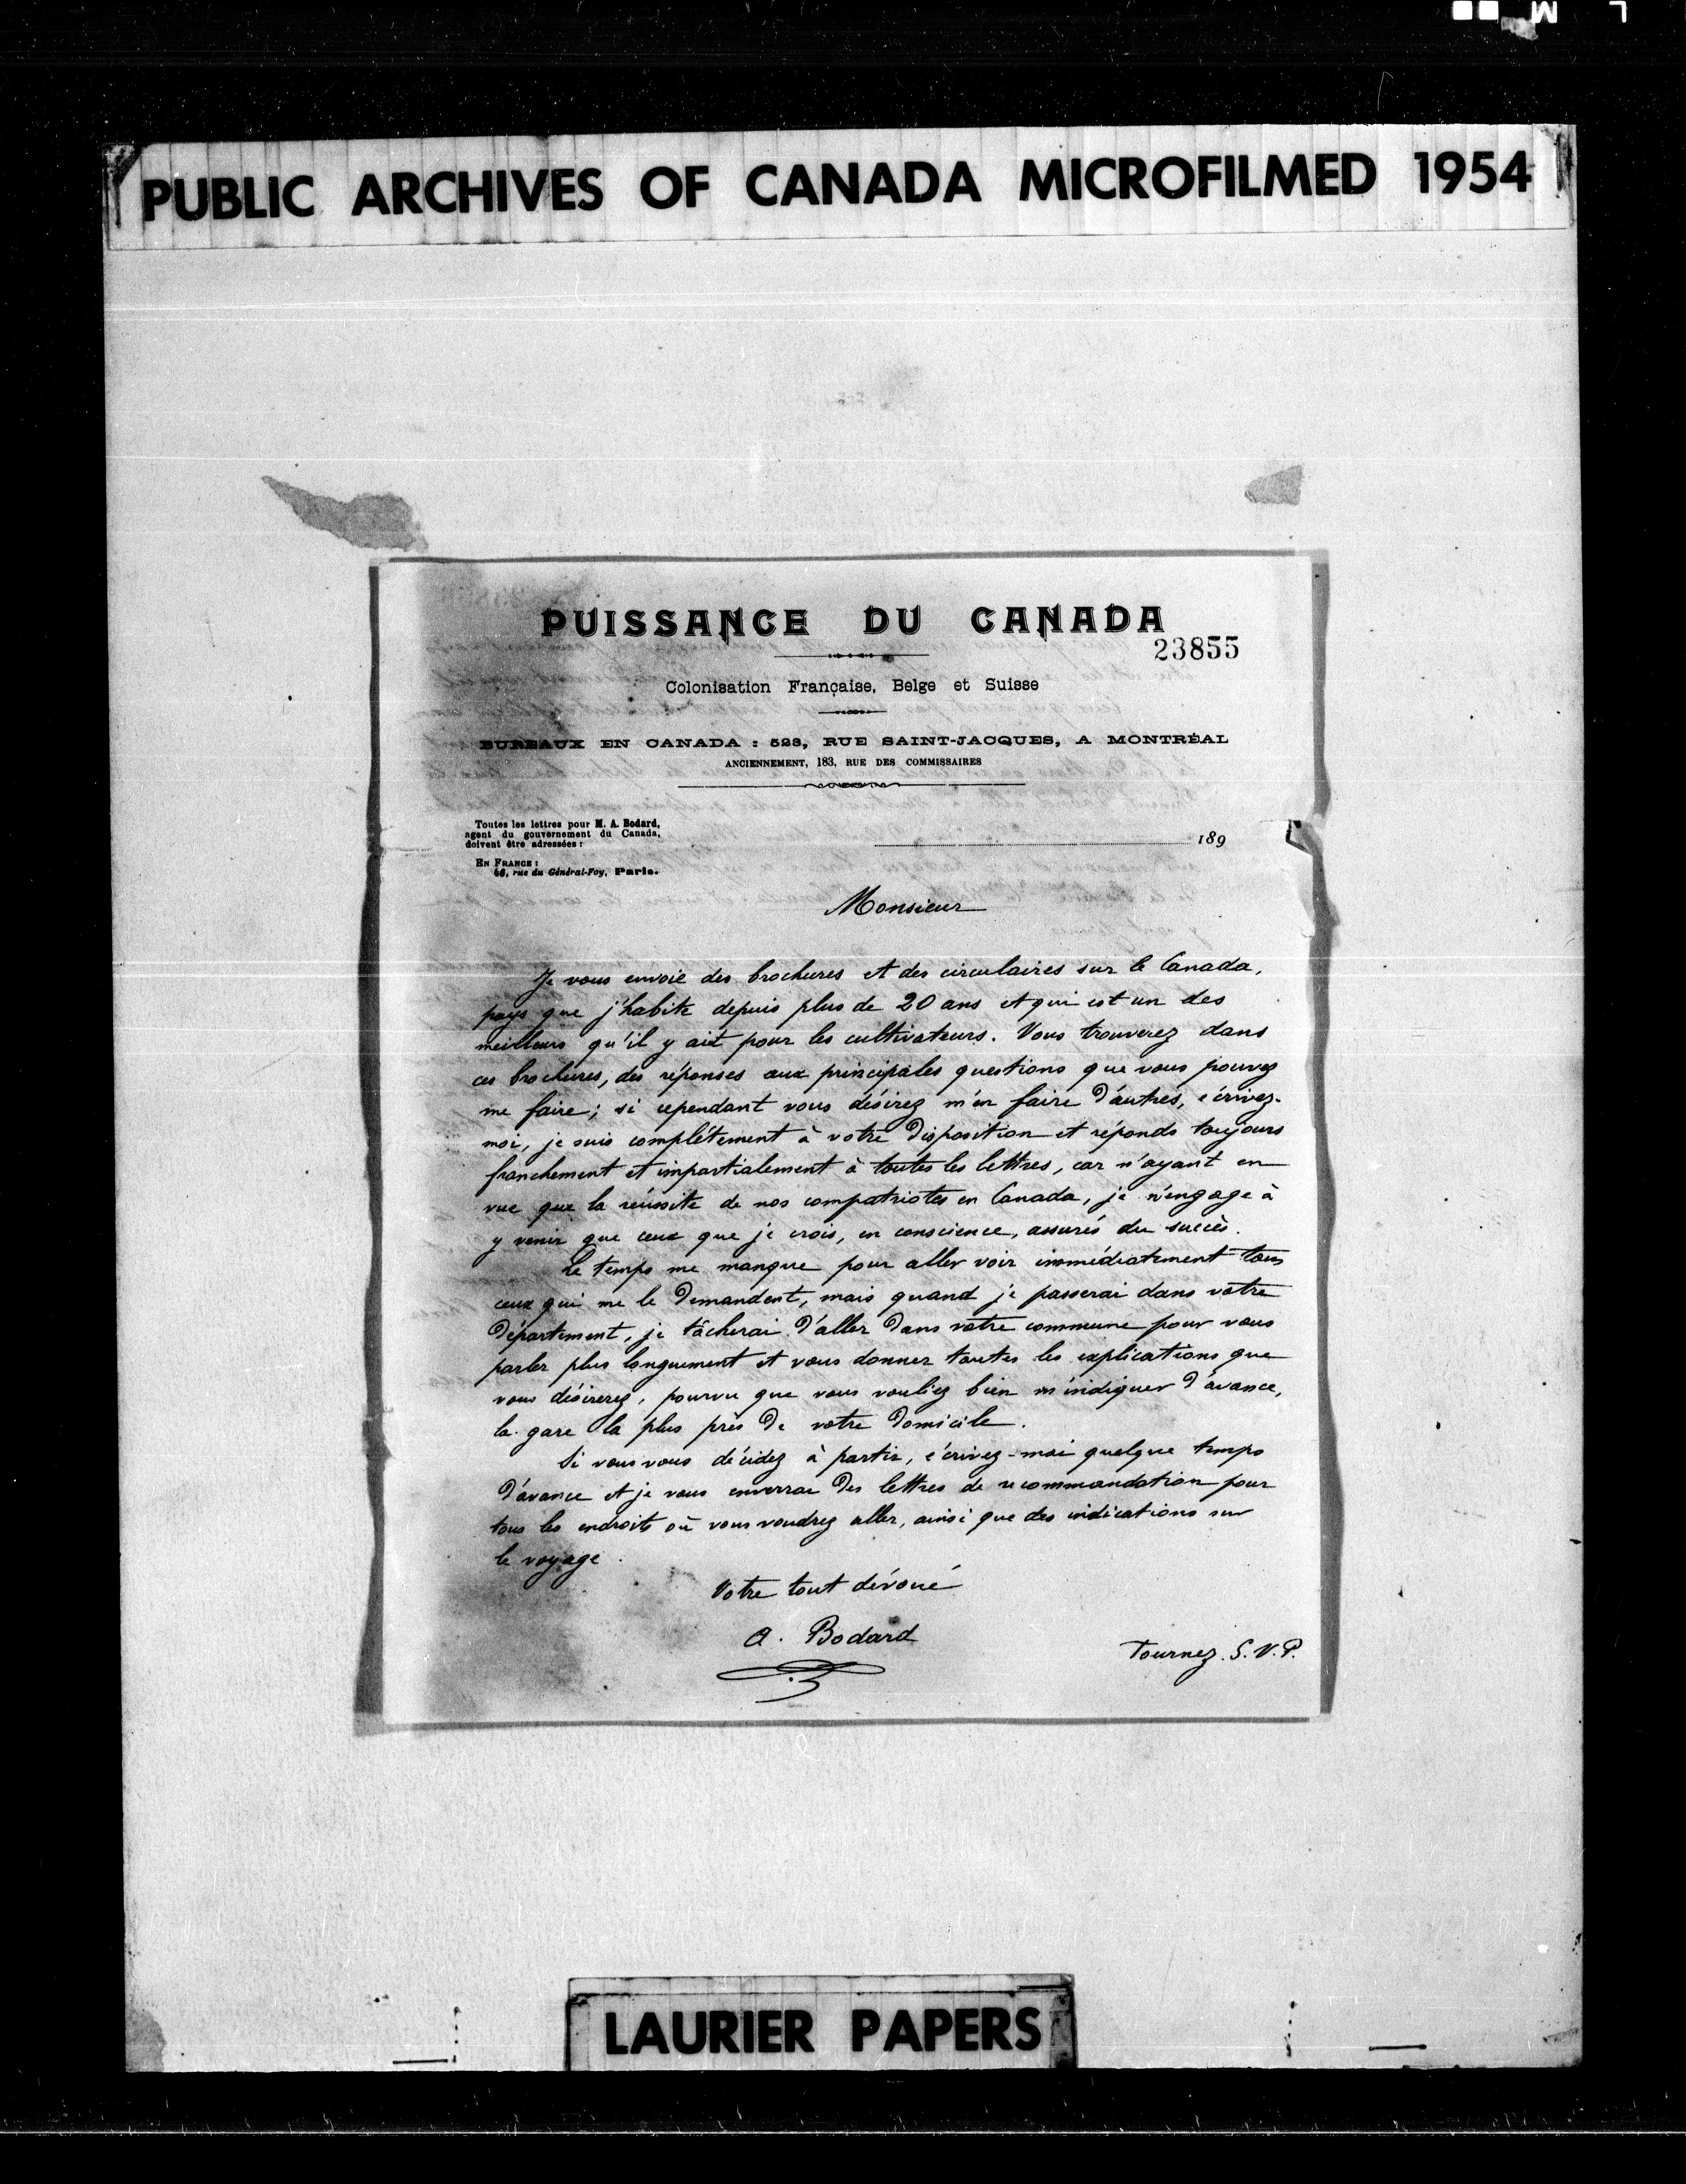 L M
PUBLIC ARCHIVES OF CANADA MICROFILMED 1954
PUISSANCE DU CANADA
23855
Colonisation Française, Belge et Suisse
BUREAUX EN CANADA : 523, RUE SAINT-JACQUES, A MONTRÉAL
ANCIENNEMENT, 183, RUE DES COMMISSAIRES
Toutes les lettres pour M. A. Bodard,
agent du gouvernement du Canada,
doivent être adressées :
189
EN FRANCE :
46, rue du Général-Foy, Paris.
Monsieur
Je vous envoie des brochures et des circulaires sur le Canada,
pays que j'habite depuis plus de 20 ans et qui est un des
meilleurs qu'il y ait pour les cultivateurs. Vous trouverez dans
ces brochures, des réponses aux principales questions que vous pouvez
me faire ; si cependant vous désirez m'en faire d'autres, écrivez-
moi, je suis complétement à votre disposition et réponds toujours
franchement et impartialement à toutes les lettres, car n'ayant en
vue que la réussite de nos compatriotes en Canada, je n'engage à
y venir que ceux que je crois, en conscience, assurés du succès.
Le temps me manque pour aller voir immédiatement tous
ceux qui me le demandent, mais quand je passerai dans votre
département, je tâcherai d'aller dans votre commune pour vous
parler plus longuement et vous donner toutes les explications que
vous désirerez, pourvu que vous vouliez bien m'indiquer d'avance,
la gare la plus près de votre domicile.
Si vous vous décidez à partir, écrivez-moi quelque temps
d'avance et je vous enverrai des lettres de recommandation pour
tous les endroits où vous voudrez aller, ainsi que des indications sur
le voyage.
Votre tout dévoué
A. Bodard
Tournez. S.V.P.
LAURIER PAPERS